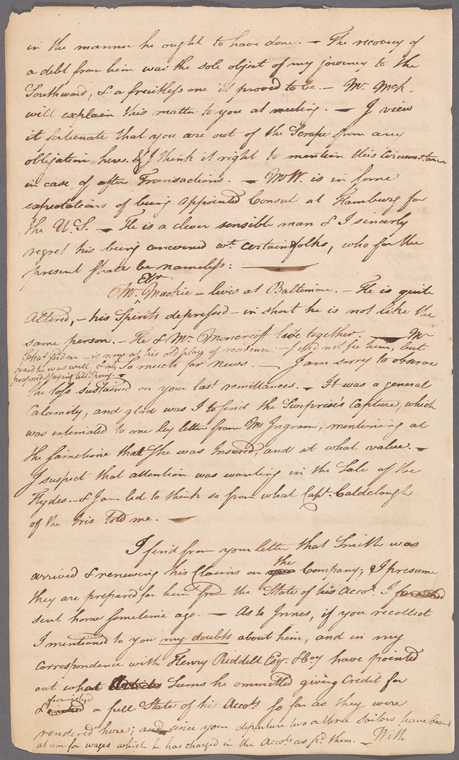 in the manner he ought to have done. – The recovery of
a debt from him was the sole object of my journey to the
Southward, & a fruitless one it proved to be. – Mr. McK.
will explain this matter to you at meeting. – I view
it fortunate that you are out of the Scrape from any
obligation here. & I think it right to mention this circumstance
in case of after Transactions. – MW. is in some
expectations of being appointed Consul at Hamburg for
the U.S. – He is a clever sensible man & I sincerely
regret his being concerned wt. certain folks, who for the
present shall be nameless: –
Mr. Mackie – lives at Baltimore. – He is quite
altered, – his Spirits depressed – in short he is not like the
same person. – He & Mr. Moncrieff live together. – Mr.
is now of his old place of residence – I did not see him, but
heard he was well &
So much for news. – I am sorry to observe
the loss sustained on your last remittances. – It was a general
Calamity, and glad was I to find the Surprise's Capture, which
was intimated to me by letter from Mr Ingram, mentioning at
the same time that She was Insured, and at what value. –
I suspect that attention was wanting in the Sale of the
Hydes. – & I am led to think so from what Capt. Caldclough
of the Iris told me. –
I find from your letter that Smith was
arrived & renewing his Claims on the Company, & I presume
they are prepared for him from the State of his Accot. I
sent home sometime ago. – As to Innes, if you recollect
I mentioned to you my doubts about him, and in my
correspondence with Henry Riddell Esqr. & Coy have pointed
out what Sums he ommitted giving Credit for
& a full State of his Accots so far as they were
rendered here; and since your departure two altera Sailors have
at one for wages which he has charged in the Accots as pd. them. – With